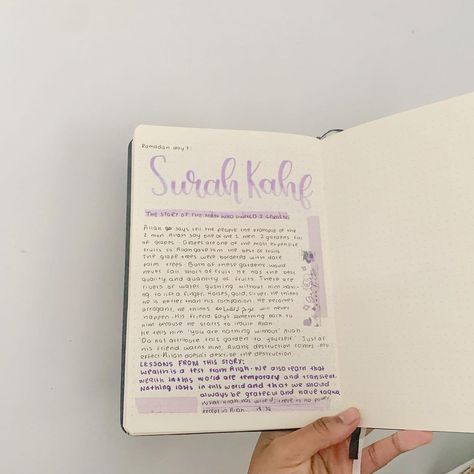 Ramadan day 7:
Surah Kahf
THE STORY OF THE MAN WHO OWNED 2 GARDENS
Allah says tell the people the example of the
2 men. Allah gay one of the 2 men, 2 gardens full
of grapes. Grapes are one of the most expensive
fruits so Allah gave him the best of fruits.
The grape trees were bordered with date
palm trees. Both of these gardens would
never fall short of fruit. He has the best
quality and quantity of fruits. There are
rivers of water gushing without him having
to lift a finger. Horses, gold, silver. He thinks
he is better than his companion. He becomes
arrogant, he thinks will never
happen. His friend says something back to
him because he starts to ridicule Allah.
He tells him 'you are nothing without' Allah
Do not attribute this garden to yourself.' Just as
his friend warns him, Allahs destruction comes into
effect. Allah doesn't describe the destruction.
LESSONS FROM THIS STORY:
Wealth is a test from Allah. We also learn that
wealth in this world are temporary and transient.
Nothing lasts in this world and that we should
always be grateful and have taqwa.
What Allah has willed; there is no power
except in Allah. 18:39